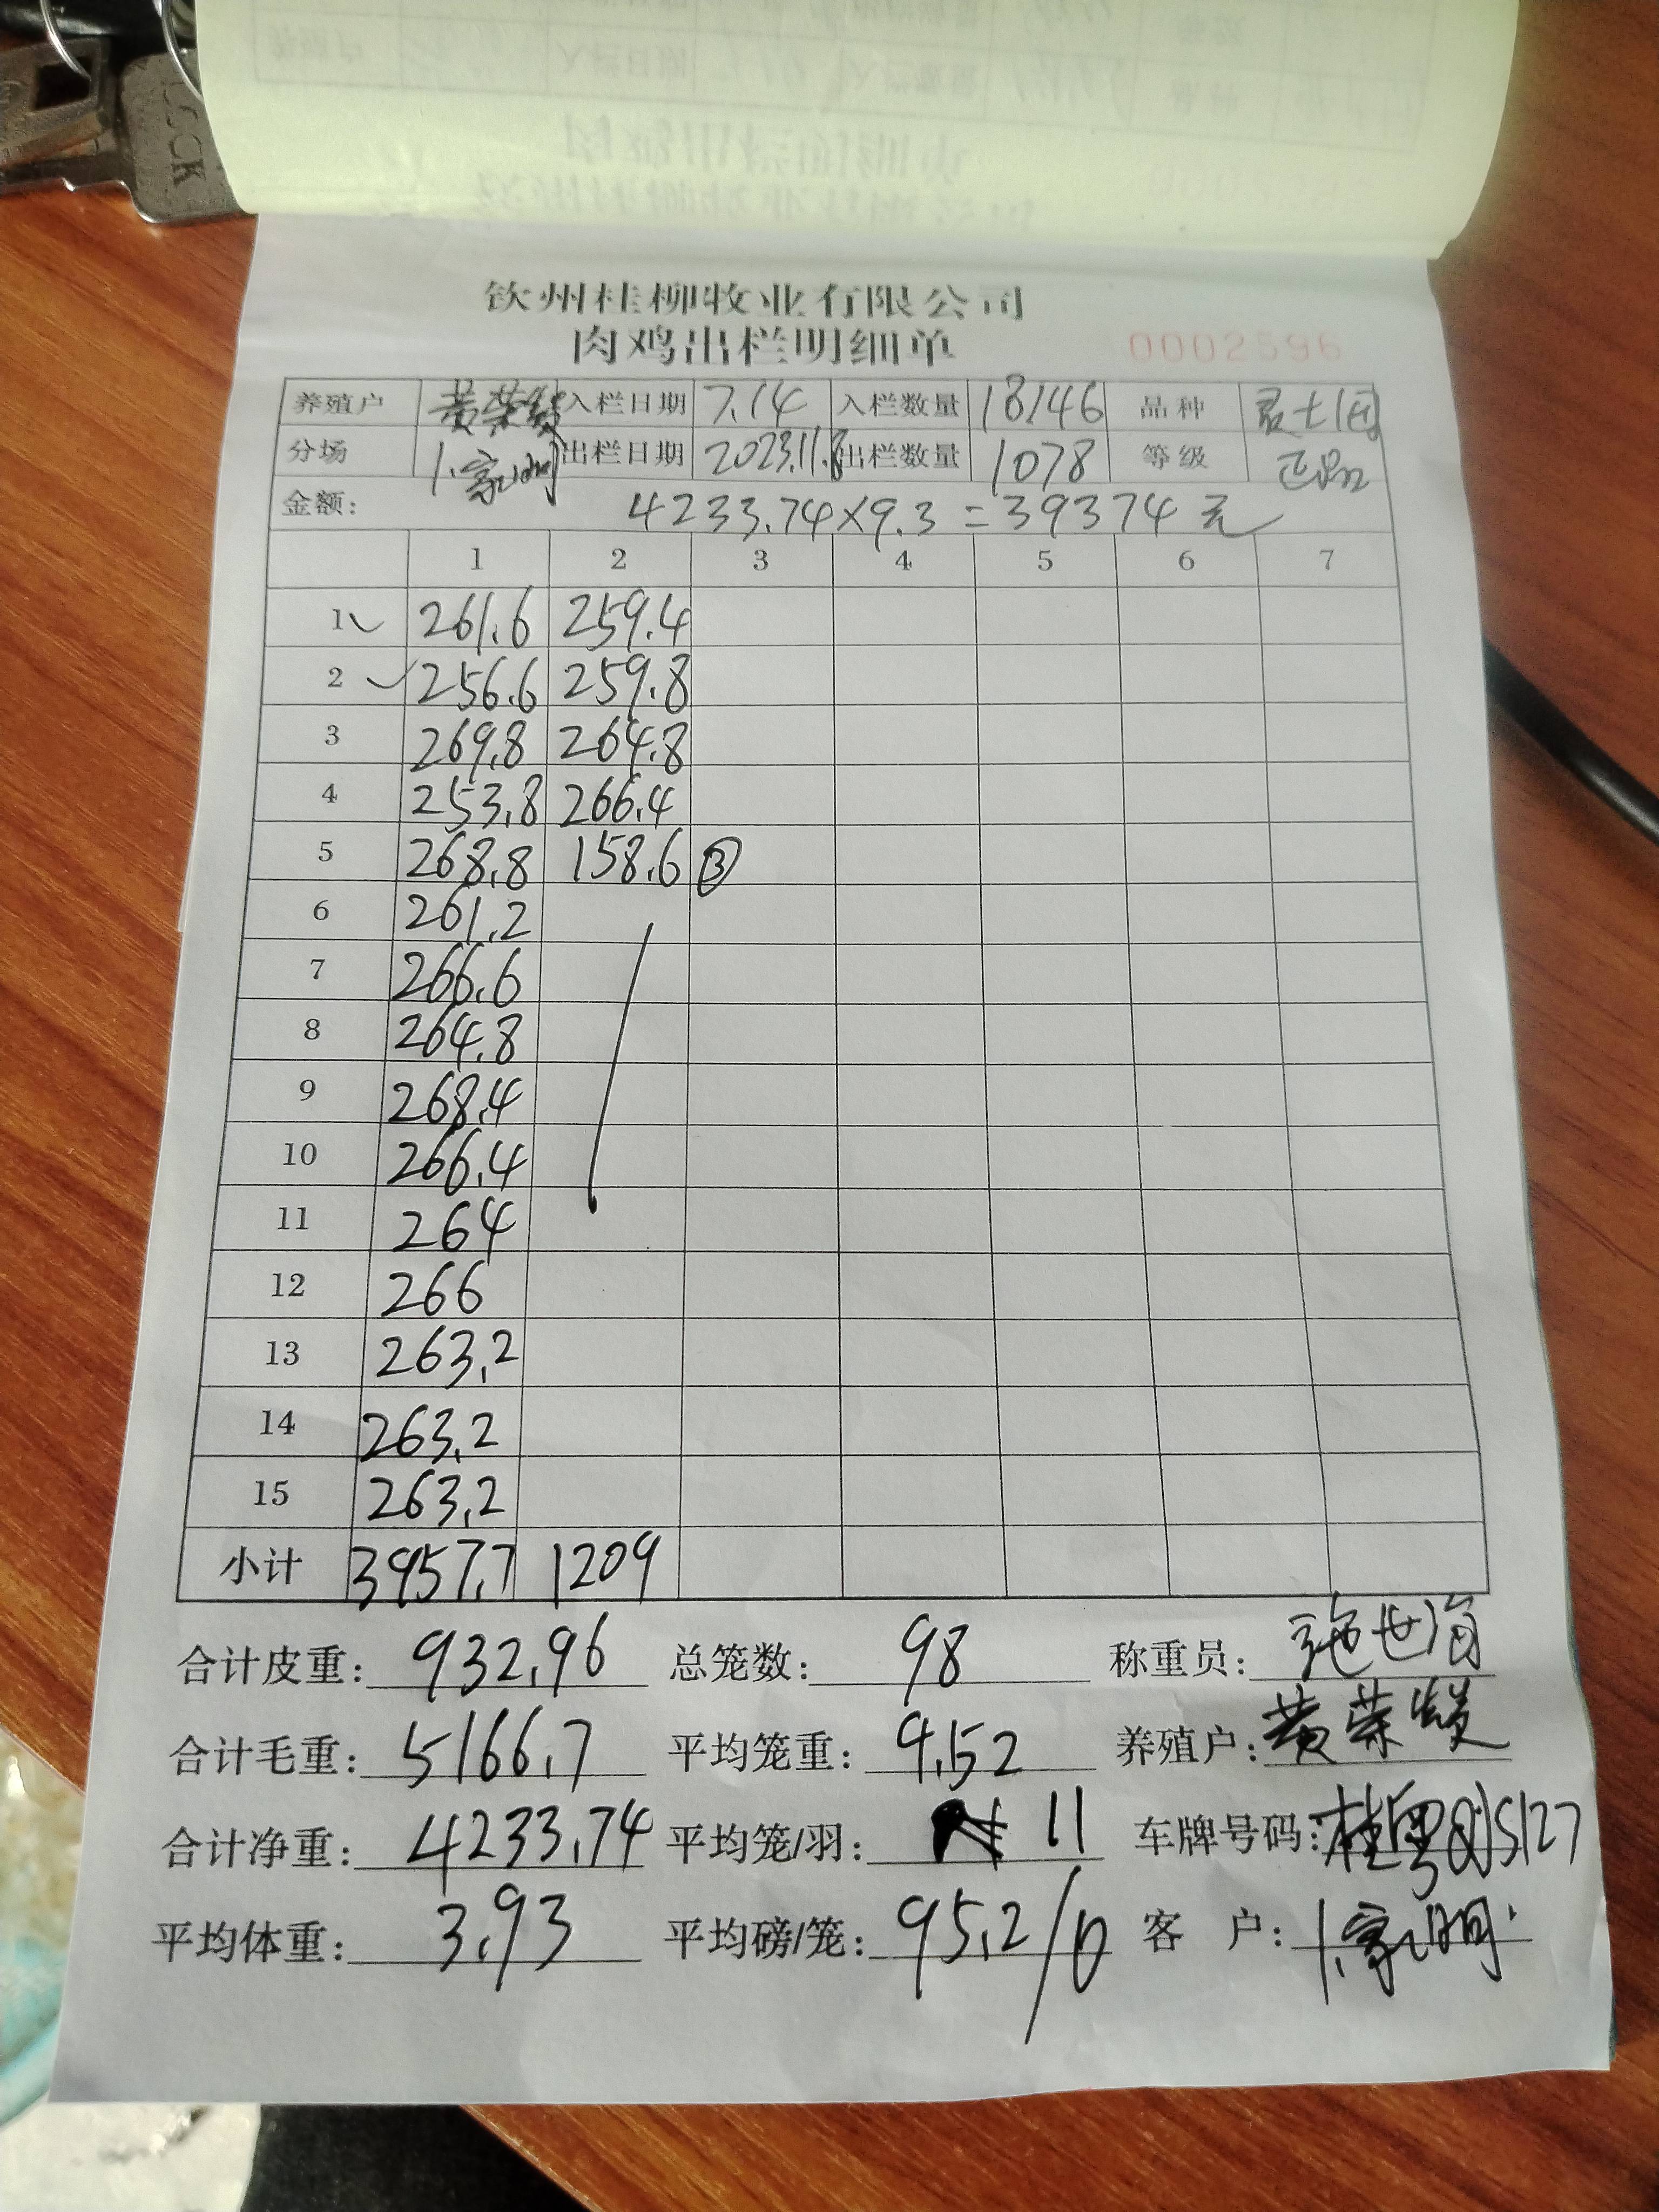 SCK
钦州桂柳牧业有限公司
肉鸡出栏明细单 0002596
养殖户 黄荣 入栏日期 7.14 入栏数量 18146 品种
分场 出栏日期 2023.11.8 出栏数量 1078 等级 正品
金额: 4233.74×9.3=39374元
1 2 3 4 5 6 7
1 261.6 259.4
2 256.6 259.8
3 269.8 264.8
4 253.8 266.4
5 268.8 158.6 ③
6 261.2
7 266.6
8 264.8
9 268.4
10 266.4
11 264
12 266
13 263.2
14 263.2
15 263.2
小计 3957.7 1209
合计皮重: 932.96 总笼数: 98 称重员: 施世海
合计毛重: 5166.7 平均笼重: 9.52 养殖户: 黄荣
合计净重: 4233.74 平均笼/羽: 11 车牌号码:
平均体重: 3.93 平均磅/笼: 95.2/ 客 户: